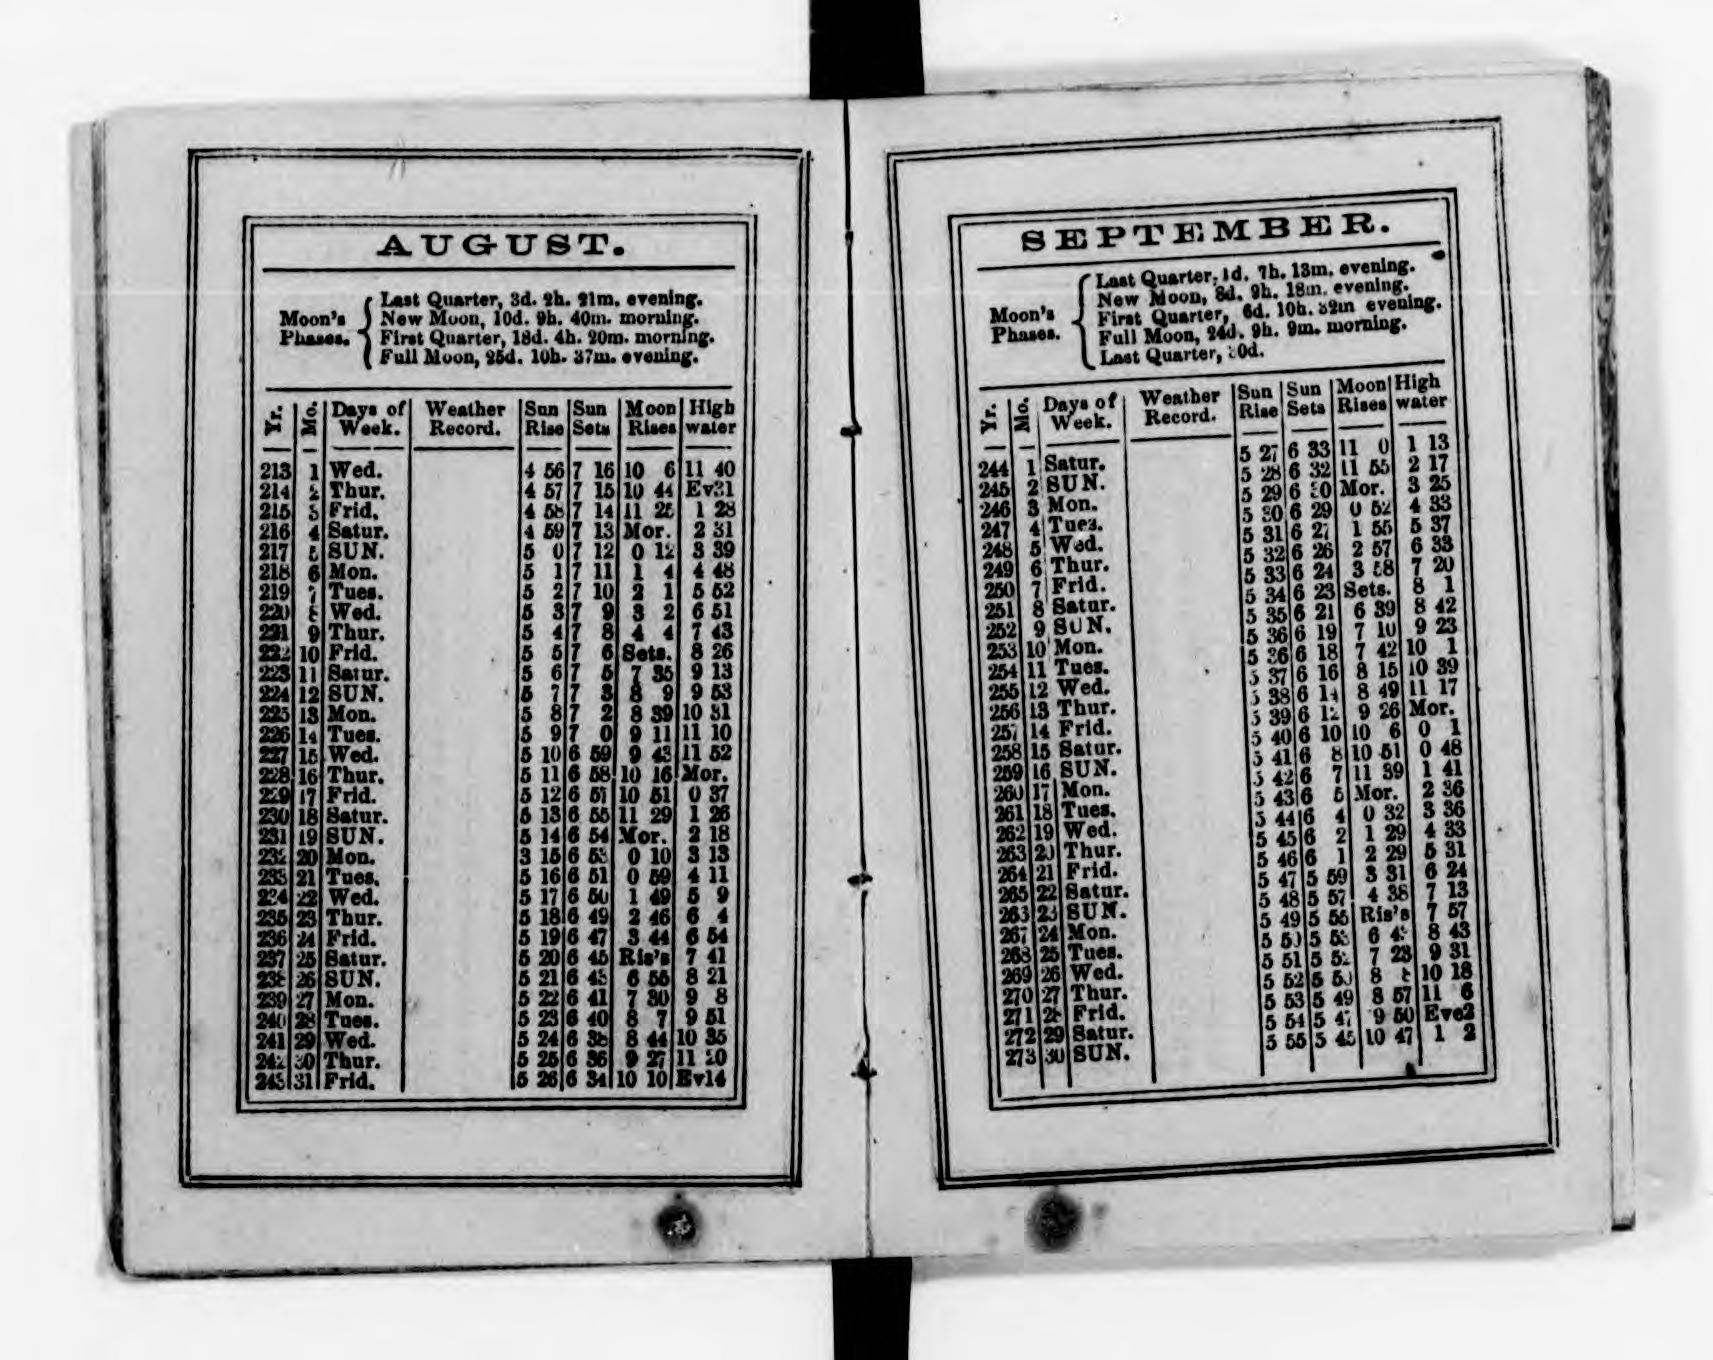 AUGUST.
Moon's Phases.
Last Quarter, 3d. 2h. 21m. evening.
New Moon, 10d. 9h. 40m. morning.
First Quarter, 18d. 4h. 20m. morning.
Full Moon, 25d. 10h. 37m. evening.
Yr. Mo. Days of Week. Weather Record. Sun Rise Sun Sets Moon Rises High water
213 1 Wed. 4 56 7 16 10 6 11 40
214 2 Thur. 4 57 7 15 10 44 Ev31
215 3 Frid. 4 58 7 14 11 25 1 28
216 4 Satur. 4 59 7 13 Mor. 2 31
217 5 SUN. 5 0 7 12 0 12 3 39
218 6 Mon. 5 1 7 11 1 4 4 48
219 7 Tues. 5 2 7 10 2 1 5 52
220 8 Wed. 5 3 7 9 3 2 6 51
221 9 Thur. 5 4 7 8 4 4 7 43
222 10 Frid. 5 5 7 6 Sets. 8 26
223 11 Satur. 5 6 7 5 7 35 9 13
224 12 SUN. 5 7 7 3 8 9 9 53
225 13 Mon. 5 8 7 2 8 39 10 31
226 14 Tues. 5 9 7 0 9 11 11 10
227 15 Wed. 5 10 6 59 9 43 11 52
228 16 Thur. 5 11 6 58 10 16 Mor.
229 17 Frid. 5 12 6 57 10 51 0 37
230 18 Satur. 5 13 6 55 11 29 1 26
231 19 SUN. 5 14 6 54 Mor. 2 18
232 20 Mon. 3 15 6 53 0 10 3 13
233 21 Tues. 5 16 6 51 0 59 4 11
234 22 Wed. 5 17 6 50 1 49 5 9
235 23 Thur. 5 18 6 49 2 46 6 4
236 24 Frid. 5 19 6 47 3 44 6 54
237 25 Satur. 5 20 6 45 Ris's 7 41
238 26 SUN. 5 21 6 43 6 55 8 21
239 27 Mon. 5 22 6 41 7 30 9 8
240 28 Tues. 5 23 6 40 8 7 9 51
241 29 Wed. 5 24 6 38 8 44 10 35
242 30 Thur. 5 25 6 36 9 27 11 20
243 31 Frid. 5 26 6 34 10 10 Ev14
SEPTEMBER.
Moon's Phases.
Last Quarter, 1d. 7h. 13m. evening.
New Moon, 8d. 9h. 18m. evening.
First Quarter, 6d. 10h. 32m evening.
Full Moon, 24d. 9h. 9m. morning.
Last Quarter, 30d.
Yr. Mo. Days of Week. Weather Record. Sun Rise Sun Sets Moon Rises High water
244 1 Satur. 5 27 6 33 11 0 1 13
245 2 SUN. 5 28 6 32 11 55 2 17
246 3 Mon. 5 29 6 30 Mor. 3 25
247 4 Tues. 5 30 6 29 0 52 4 33
248 5 Wed. 5 31 6 27 1 55 5 37
249 6 Thur. 5 32 6 26 2 57 6 33
250 7 Frid. 5 33 6 24 3 58 7 20
251 8 Satur. 5 34 6 23 Sets. 8 1
252 9 SUN. 5 35 6 21 6 39 8 42
253 10 Mon. 5 36 6 19 7 10 9 23
254 11 Tues. 5 36 6 18 7 42 10 1
255 12 Wed. 5 37 6 16 8 15 10 39
256 13 Thur. 5 38 6 14 8 49 11 17
257 14 Frid. 5 39 6 12 9 26 Mor.
258 15 Satur. 5 40 6 10 10 6 0 1
259 16 SUN. 5 41 6 8 10 51 0 48
260 17 Mon. 5 42 6 7 11 39 1 41
261 18 Tues. 5 43 6 5 Mor. 2 36
262 19 Wed. 5 44 6 4 0 32 3 36
263 20 Thur. 5 45 6 2 1 29 4 33
264 21 Frid. 5 46 6 1 2 29 5 31
265 22 Satur. 5 47 5 59 3 31 6 24
263 23 SUN. 5 48 5 57 4 38 7 13
267 24 Mon. 5 49 5 55 Ris's 7 57
268 25 Tues. 5 50 5 53 6 8 43
269 26 Wed. 5 51 5 52 7 23 9 31
270 27 Thur. 5 52 5 50 8 10 18
271 28 Frid. 5 53 5 49 8 57 11 6
272 29 Satur. 5 54 5 47 9 50 Eve2
273 30 SUN. 5 55 5 45 10 47 1 2